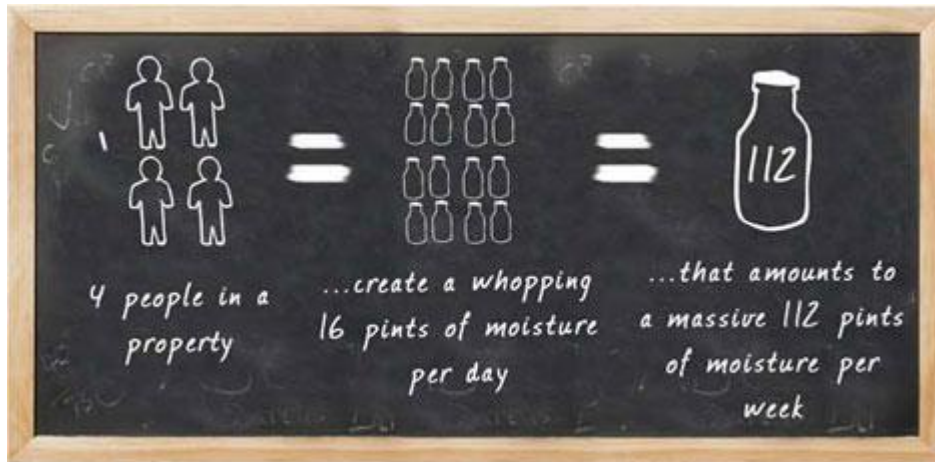 4 people in a
property
...create a whopping
16 pints of moisture
per day
112
...that amounts to
a massive 112 pints
of moisture per
week